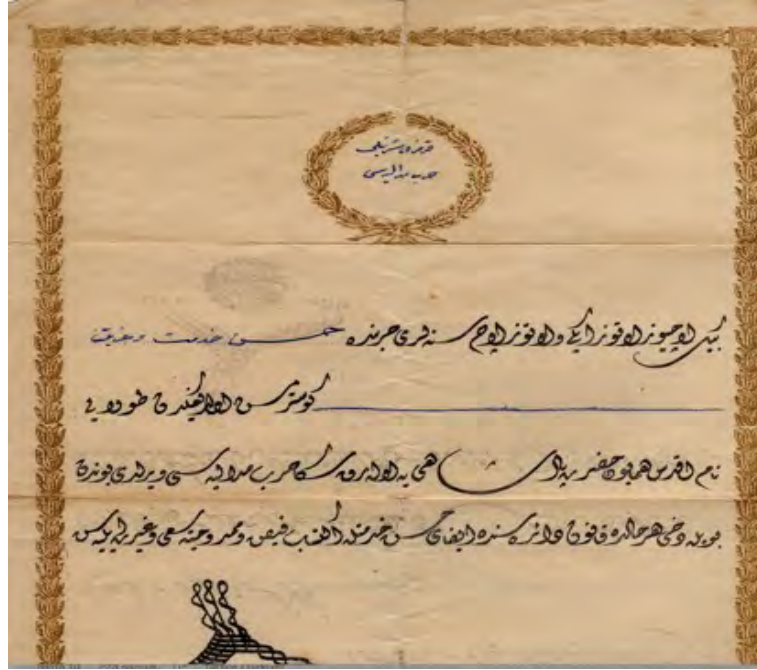 حرب مداليه سی
بيك اوچيوز اوتوز ايكی و اوتوز اوچ سنه لری حربنده حسن خدمت و غيرت
كوسترمش اولديغكدن طولايی
نام اقدس همايون حضرت پادشاهی يه اولارق سكا حرب مداليه سی ويرلدی بوندن
بويله دخی هر حالده قانون دائره سنده ايفای حسن خدمتله اكتساب فيض و ممدوحيته سعی و غيرت ايليه سن